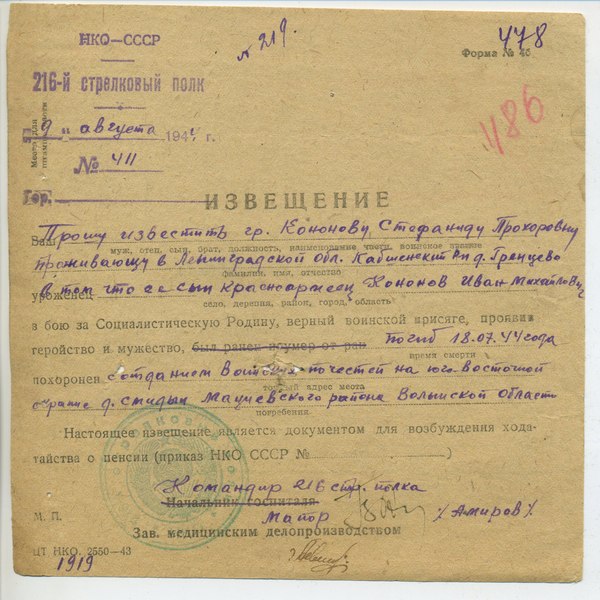 НКО—СССР
№ 219.
478
Форма № 46
216-й стрелковый полк
486
Место для штампа части
"9" августа 1944 г.
№ 411
Гор.
ИЗВЕЩЕНИЕ
Прошу известить гр. Кононову Стефаниду Прохоровну
Ваш
муж, отец, сын, брат, должность, наименование части, воинское звание
проживающу в Ленинградской обл. р-н д. Гренцево
фамилия, имя, отчество
в том что ее сын красноармеец Кононов Иван Михайлович
уроженец
село, деревня, район, город, область
в бою за Социалистическую Родину, верный воинской присяге, проявив
геройство и мужество, был ранен и умер от ран погиб 18.07.44 года
время смерти
похоронен с отданием воинских почестей на юго-восточной
точный адрес места
окраине д. Мацеевского района Волынской области
погребения.
Настоящее извещение является документом для возбуждения хода-
тайства о пенсии (приказ НКО СССР № )
Командир 216 стр. полка
Начальник госпиталя
М. П.
Майор /Амиров/
Зав. медицинским делопроизводством
ЦТ НКО. 2550—43
1919